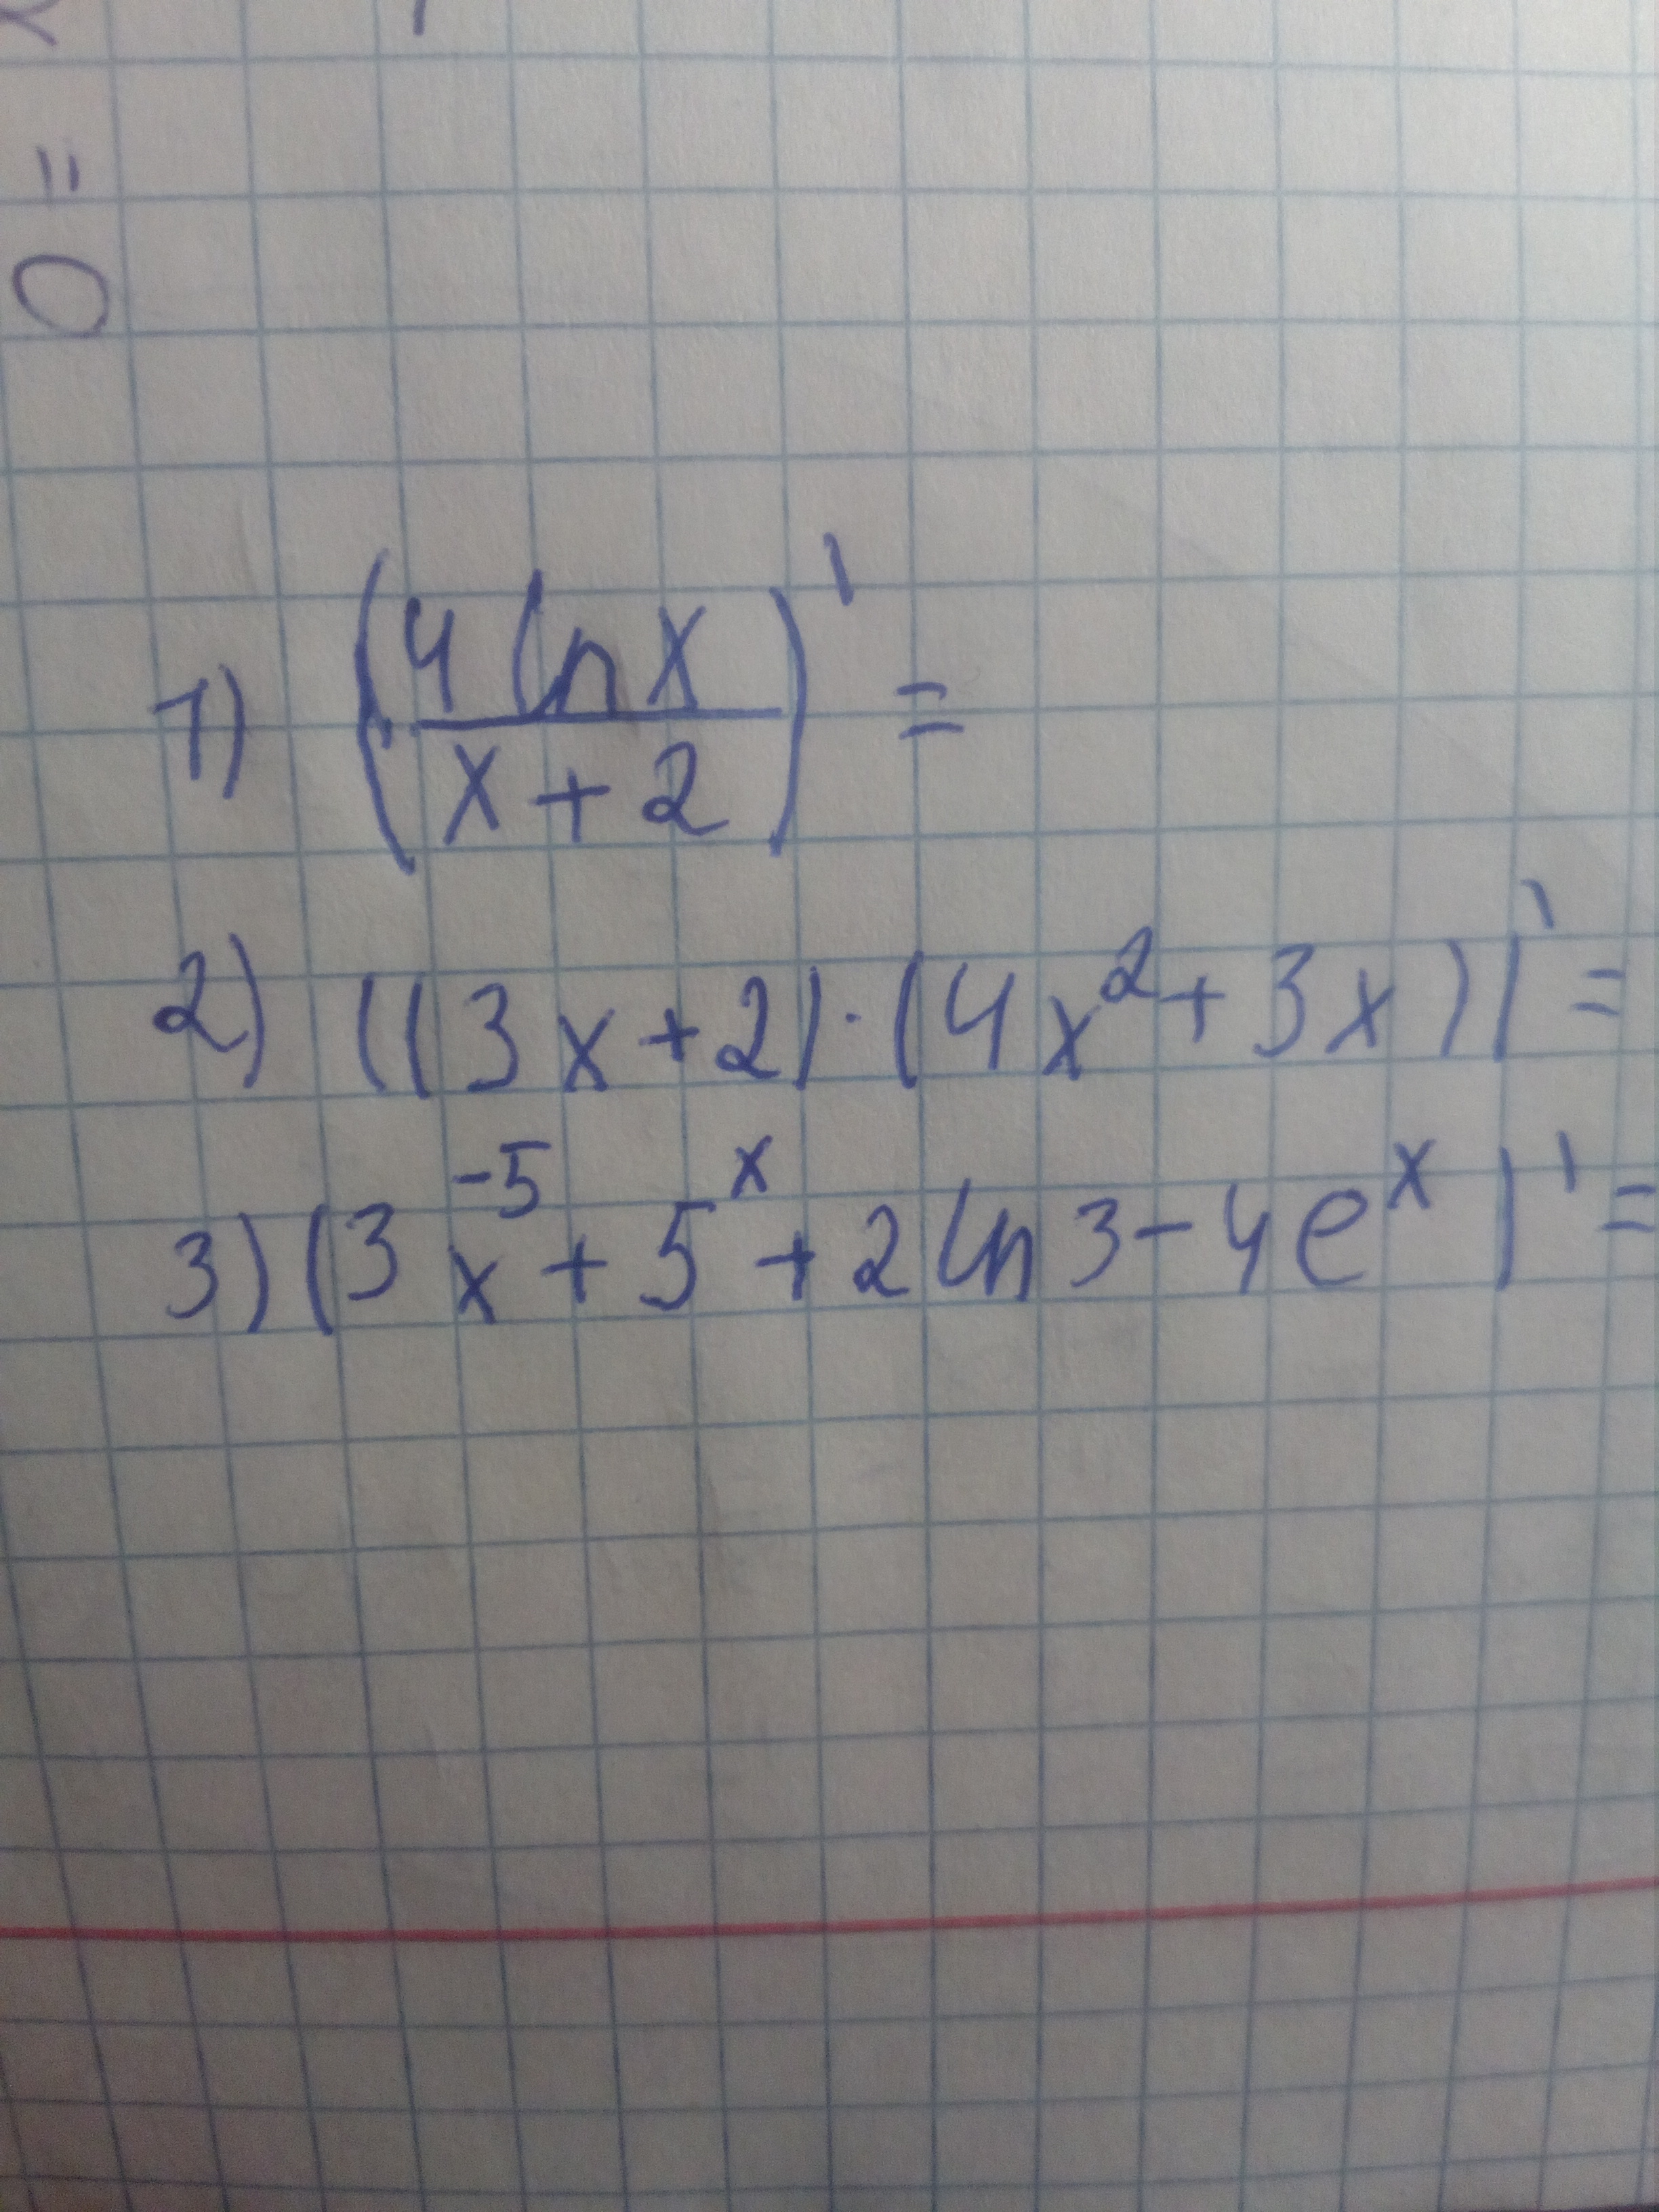 0 =
1) (4 ln x / x + 2)' =
2) ((3x+2)·(4x²+3x))' =
3) (3^-5 x + 5^x + 2 ln 3 - 4e^x)' =